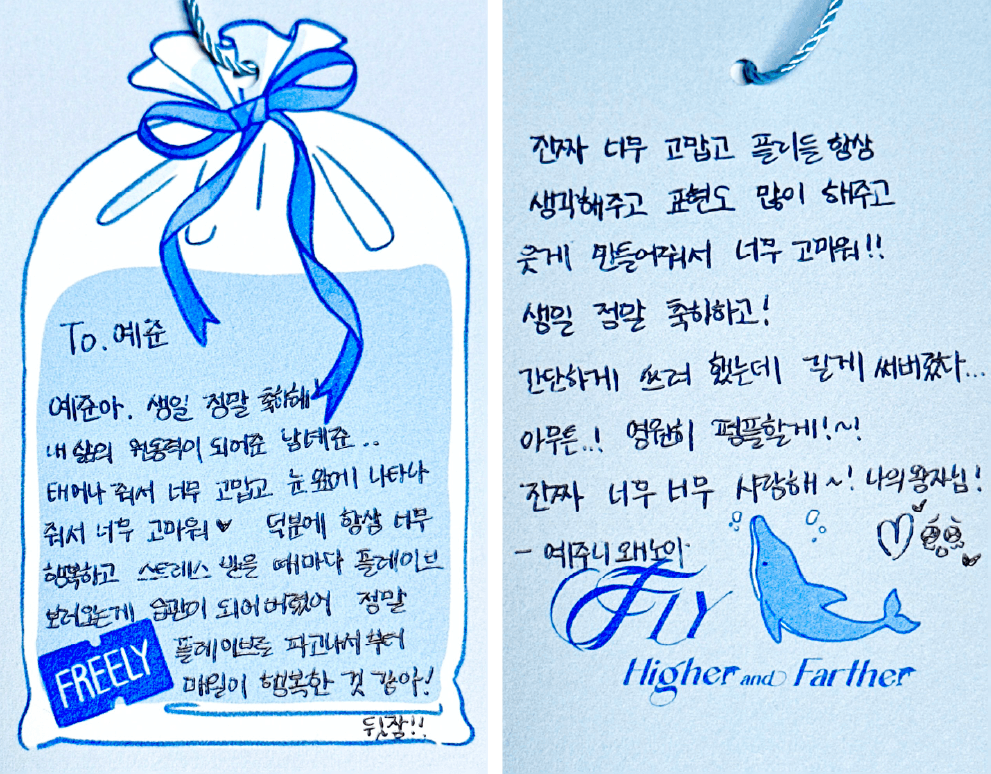 To. 예준
예준아. 생일 정말 축하해!
내 삶의 원동력이 되어준 남예준..
태어나 줘서 너무 고맙고 눈 앞에 나타나
줘서 너무 고마워♥ 덕분에 항상 너무
행복하고 스트레스 받을 때마다 플레이브
보러오는게 습관이 되어버렸어 정말
플레이브를 파고나서부터
매일이 행복한 것 같아!
FREELY
뒷장!!
진짜 너무 고맙고 플리들 항상
생각해주고 표현도 많이 해주고
웃게 만들어줘서 너무 고마워!!
생일 정말 축하하고!
간단하게 쓰려 했는데 길게 써버렸다...
아무튼..! 영원히 평플할게!~!
진짜 너무 너무 사랑해~! 나의 왕자님!
- 예주니 왜노아
FLY
Higher and Farther